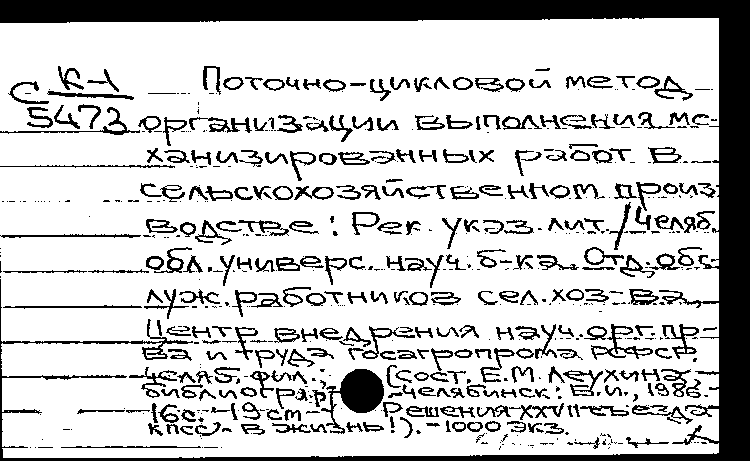 С К-1
5473
Поточно-цикловой метод
организации выполнения ме-
ханизированных работ в
сельскохозяйственном произ-
водстве: Рек. указ. лит. / Челяб.
обл. универс. науч. б-ка. Отд. обс-
луж. работников сел. хоз-ва,
Центр внедрения науч. орг. пр-
ва и труда Госагропрома РСФСР,
Челяб. фил.; [Сост. Е.М. Леухина,
библиогр. -Челябинск: Б.и., 1986.-
16с.-19 cm-( Решения XXVII съезда
КПСС- в жизнь!).-1000 экз.